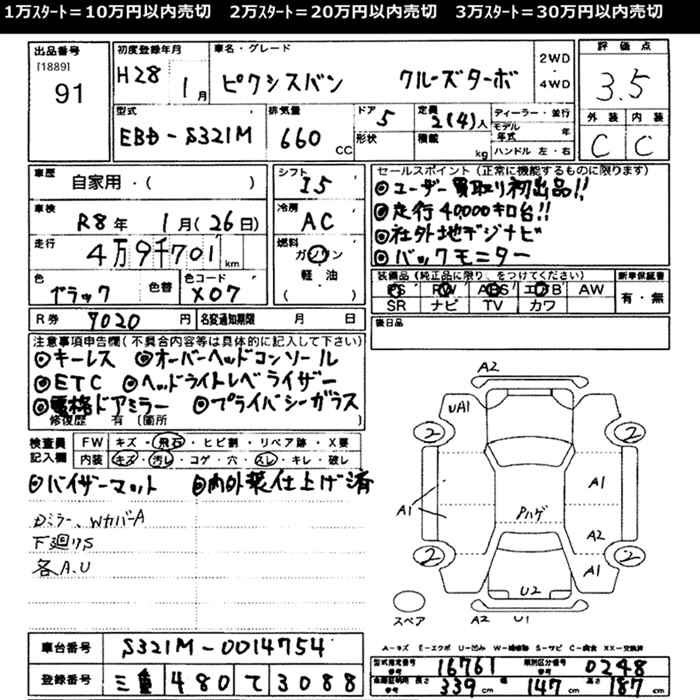 1万スタート=10万円以内売切　2万スタート=20万円以内売切　3万スタート=30万円以内売切
出品番号 初度登録年月 車名・グレード 2WD・4WD 評価点
[1889]
91 H28 1月 ピクシスバン クルーズターボ 3.5
型式 排気量 ドア 定員 ディーラー・並行 外装 内装
EBD-S321M 660 CC 5 2(4)人 モデル年式 年 C C
形状 積載 kg ハンドル 左・右
車歴 自家用・( ) シフト I5 セールスポイント(正常に機能するものに限ります)
◎ユーザー買取り初出品!!
車検 R8年 1月(26日) 冷房 AC ◎走行40,000キロ台!!
走行 4万9千701km 燃料 ガソリン ◎社外地デジナビ
軽・油 ◎バックモニター
( )
色 ブラック 色替 色コード X07 装備品(純正品に限り、をつけてください) 新車保証書
PS PW ABS エアB AW 有・無
SR ナビ TV カワ
R券 9020円 名変通知期限 月 日 後日品
注意事項申告欄(不具合内容等は具体的に記入して下さい)
◎キーレス ◎オーバーヘッドコンソール
◎ETC ◎ヘッドライトレベライザー
◎電格ドアミラー ◎プライバシーガラス
修復歴 有 (箇所 )
検査員記入欄 FW キズ・飛石・ヒビ割・リペア跡・X要
内装 キズ・汚レ・コゲ・穴・スレ・キレ・破レ
◎バイザーマット ◎内外装仕上げ済
Dミラー、WカバーA
下廻りS
各A.U
A2
UA1
2 2
A1 A1
Pハゲ
A2
2 A1 2
U2
スペア A2 U1
A－キズ E－エクボ U－凹み W－補修跡 S－サビ C－腐食 XX－交換済
車台番号 S321M-0014754
型式指定番号 16761 類別区分番号 0248
登録番号 三重 480 て 3088
長さ 339cm 幅 147cm 高さ 187cm